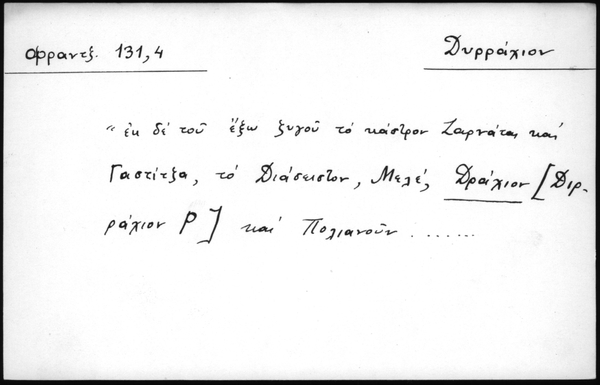 Φραντζ. 131,4
Δυρράχιον
"ἐκ δέ τοῦ ἔξω ξυγοῦ τό κάστρον Ζαρνάται καί
Γαστίτζα, τό Διάσειστον, Μελέ, Δράχιον [Διρ-
ράχιον P] καί Πολιανοῦν .......